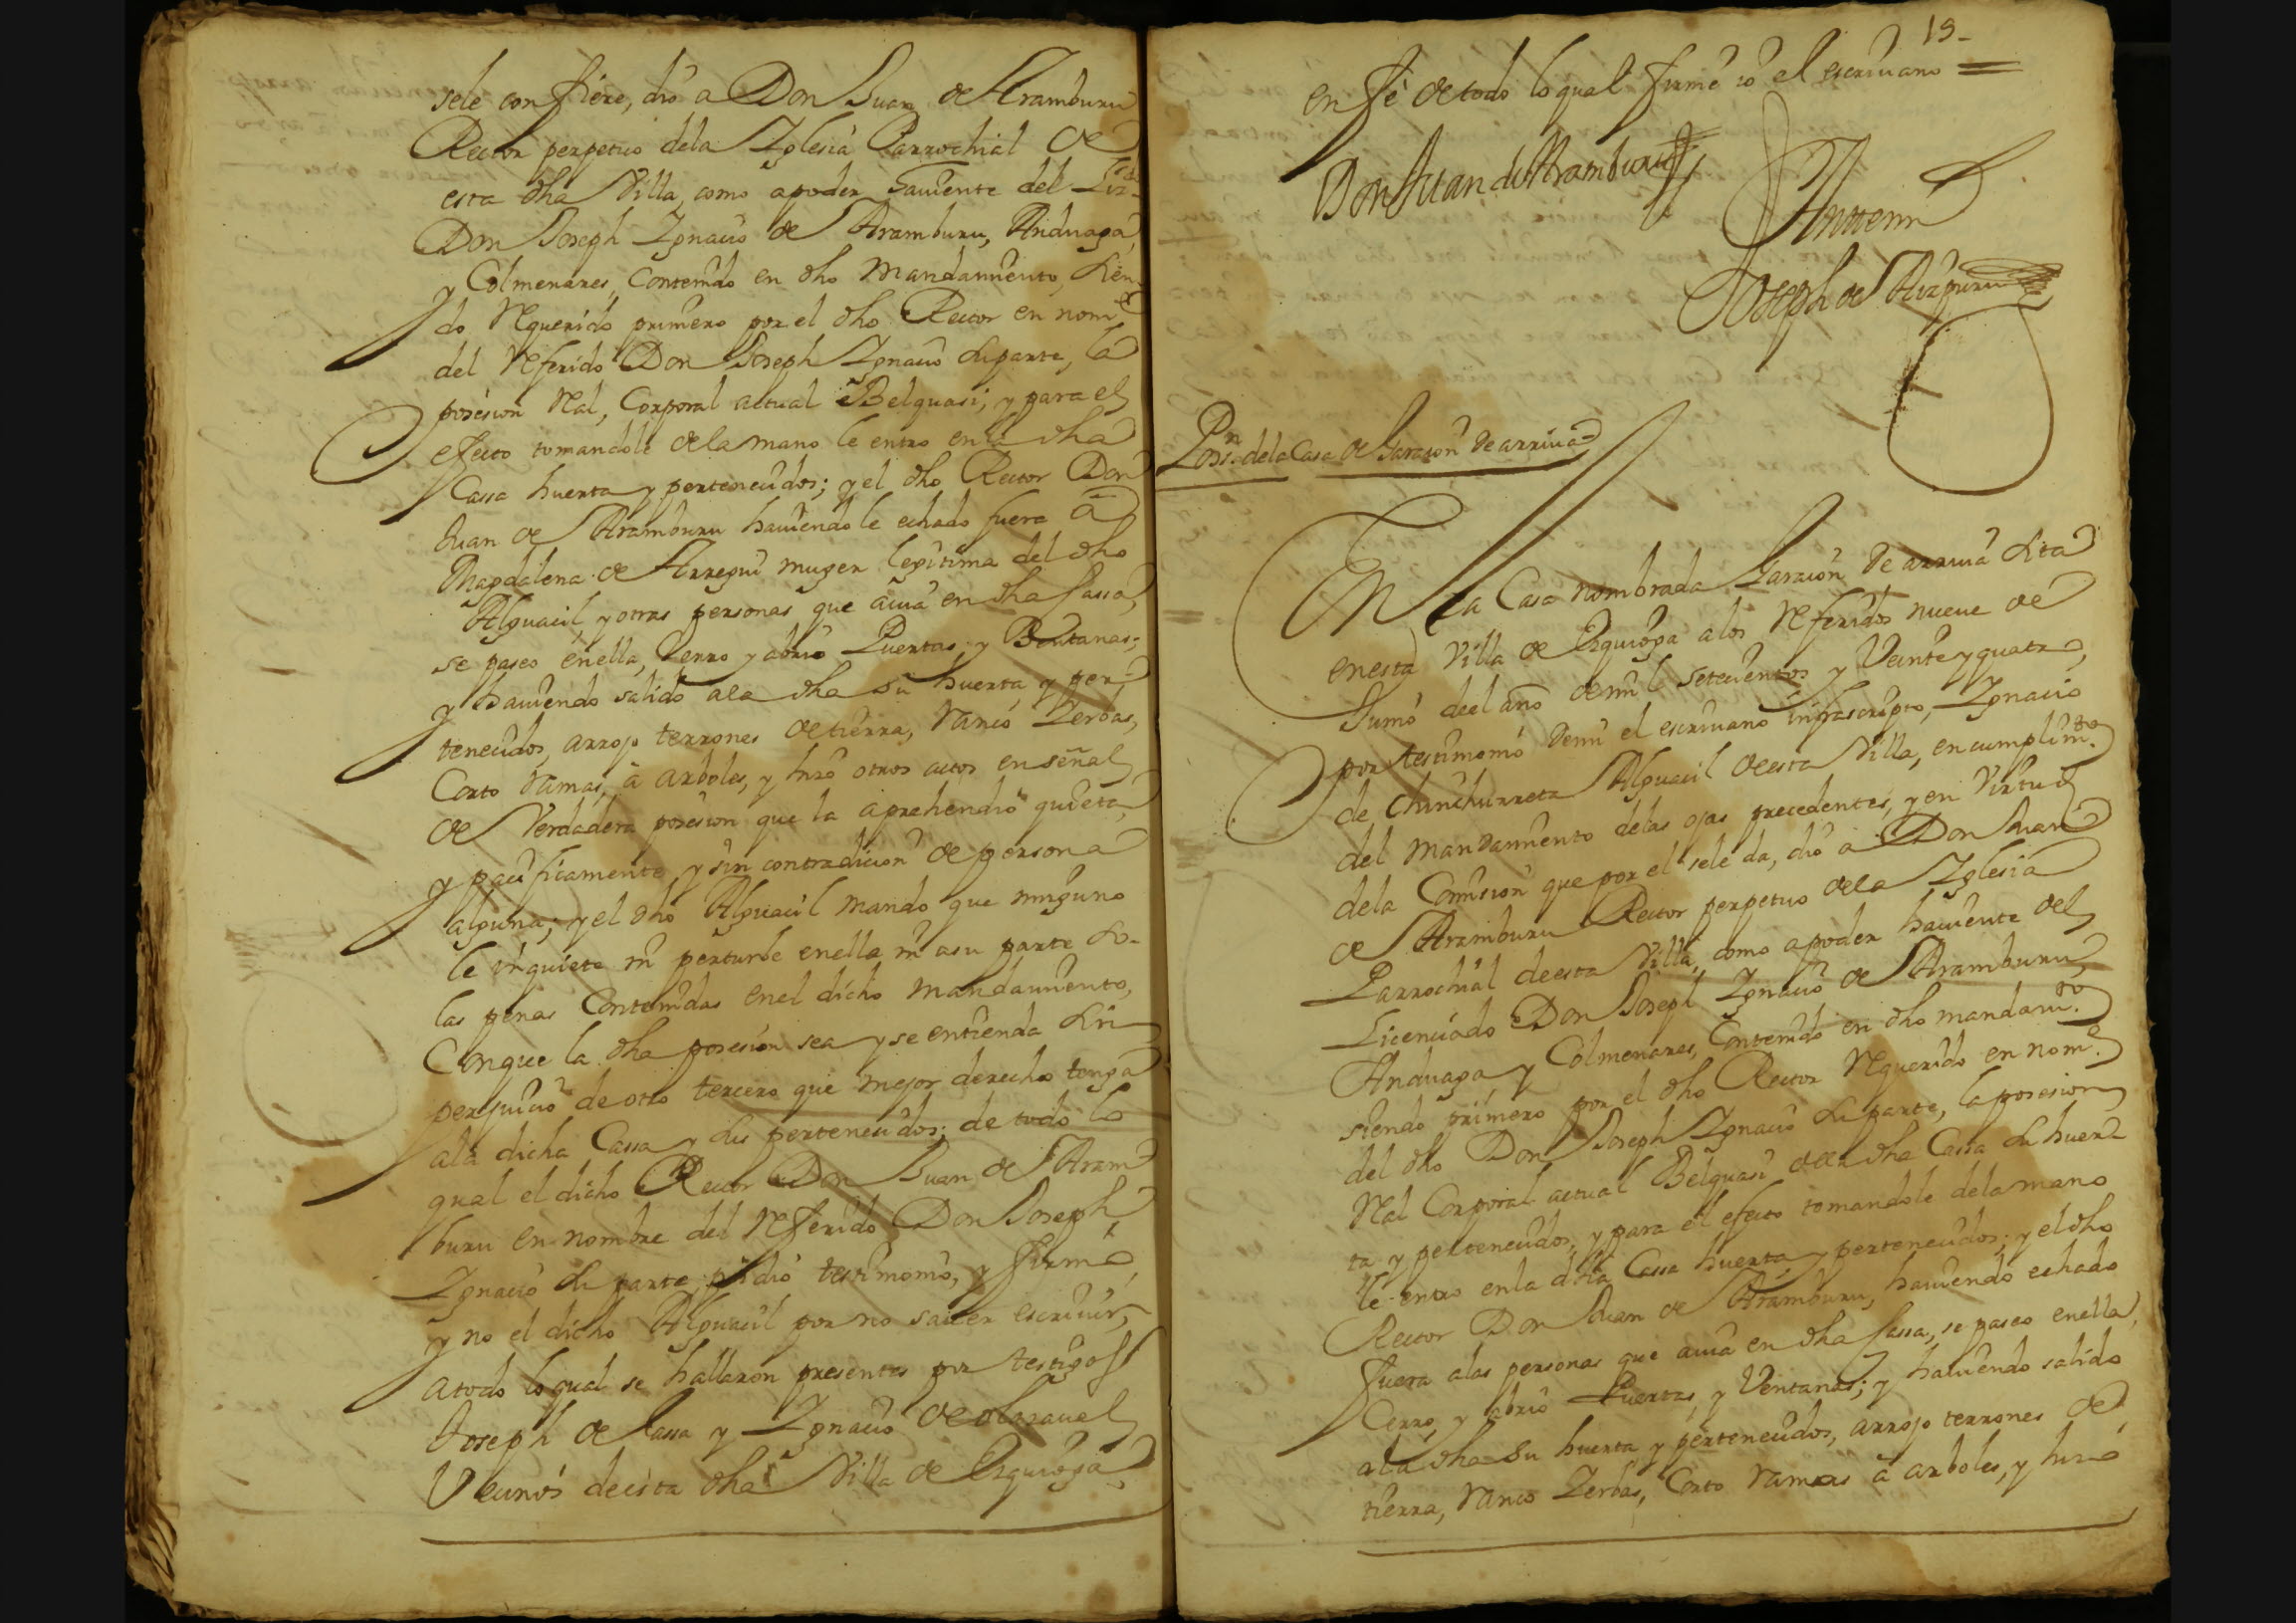 sele confiere, dio a Don Juan de Aramburu
Rector perpetuo dela Yglesia Parrochial de
esta dha Villa, como apoder haviente del Lizdo
Don Joseph Ygnacio de Aramburu, Anduaga,
y Colmenares, Contenido en dho Mandamiento, sien-
do Requerido primero por el dho Rector en nome
del Referido Don Joseph Ygnacio su parte, la
posesion Real, Corporal actual Belquasi, y para el
efecto tomandole dela mano le entro en la dha
Cassa huerta y pertenecidos; y el dho Rector Don
Juan de Aramburu haviendole echado fuera a
Magdalena de Arregui muger legitima del dho
Alguacil y otras personas que avia en dha Cassa,
se paseo en ella, Zerro y abrio Puertas, y Bentanas;
y haviendo salido ala dha su huerta y per-
tenecidos, arrojo terrones de tierra, Ranco Zerbas,
Corto Ramas, à arboles, y hizo otros actos en señal
de Verdadera posesion que la aprehendio quieta,
y pacificamente y sin contradicion de persona
alguna; y el dho Alguacil mando que ninguno
le inquiete ni perturbe enella ni asu parte so-
las penas Contenidas enel dicho Mandamiento,
Conque la dha posesion sea y se entienda sin
perjuicio de otro tercero que mejor derecho tenga
ala dicha Cassa y sus pertenecidos; de todo lo
qual el dicho Rector Don Juan de Aram-
buru en nombre del Referido Don Joseph
Ygnacio su parte pidio testimonio, y firmó
y no el dicho Alguacil por no saver escrivir,
atodo lo qual se hallaron presentes por testigos
Joseph de Sassa y Ygnacio de olaraval
Vecinos deesta dha Villa de Ezquioga,
19-
en fé de todo lo qual firmé io el escrivano =
Don Juan de Aramburu
Antemi
Joseph de Aizpuru
Posn. dela Casa de Garacon de arriva=
En La Casa nombrada Garacion de arriva sita
enesta Villa de Ezquioga alos Referidos nueve de
Junio deel año de mil setecientos y Veinte y quatro,
por testimonio demi el escrivano infrascripto, Ygnacio
de Chinchurreta Alguacil deesta Villa, en cumplimto.
del Mandamiento delas ojas precedentes, y en Virtud
dela Comision que por el sele da, dio a Don Juan
de Aramburu Rector perpetuo dela Yglesia
Parrochial deesta Villa, como apoder haviente del
Licenciado Don Joseph Ygnacio de Aramburu,
Anduaga y Colmenares, Contenido en dho mandamto.
siendo primero por el dho Rector Requerido en nome.
del dho Don Joseph Ygnacio su parte, la posesion
Real Corporal actual Belquasi dela dha Cassa su huer-
ta y pertenecidos, y para el efecto tomandole dela mano
le entro enla dha Cassa huerta y pertenecidos; y el dho
Rector Don Juan de Aramburu, haviendo echado
fuera alas personas que avia en dha Cassa, se paseo enella,
Cerro, y abrio Puertas, y Ventanas; y haviendo salido
ala dha su huerta y pertenecidos, arrojo terrones de
tierra, Ranco Zerbas, Corto Ramas à arboles, y hizo